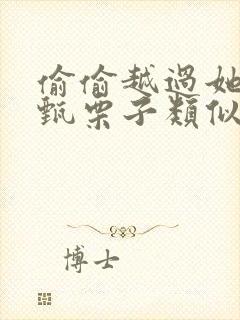 偷偷越過她
甄栗子類似
博士